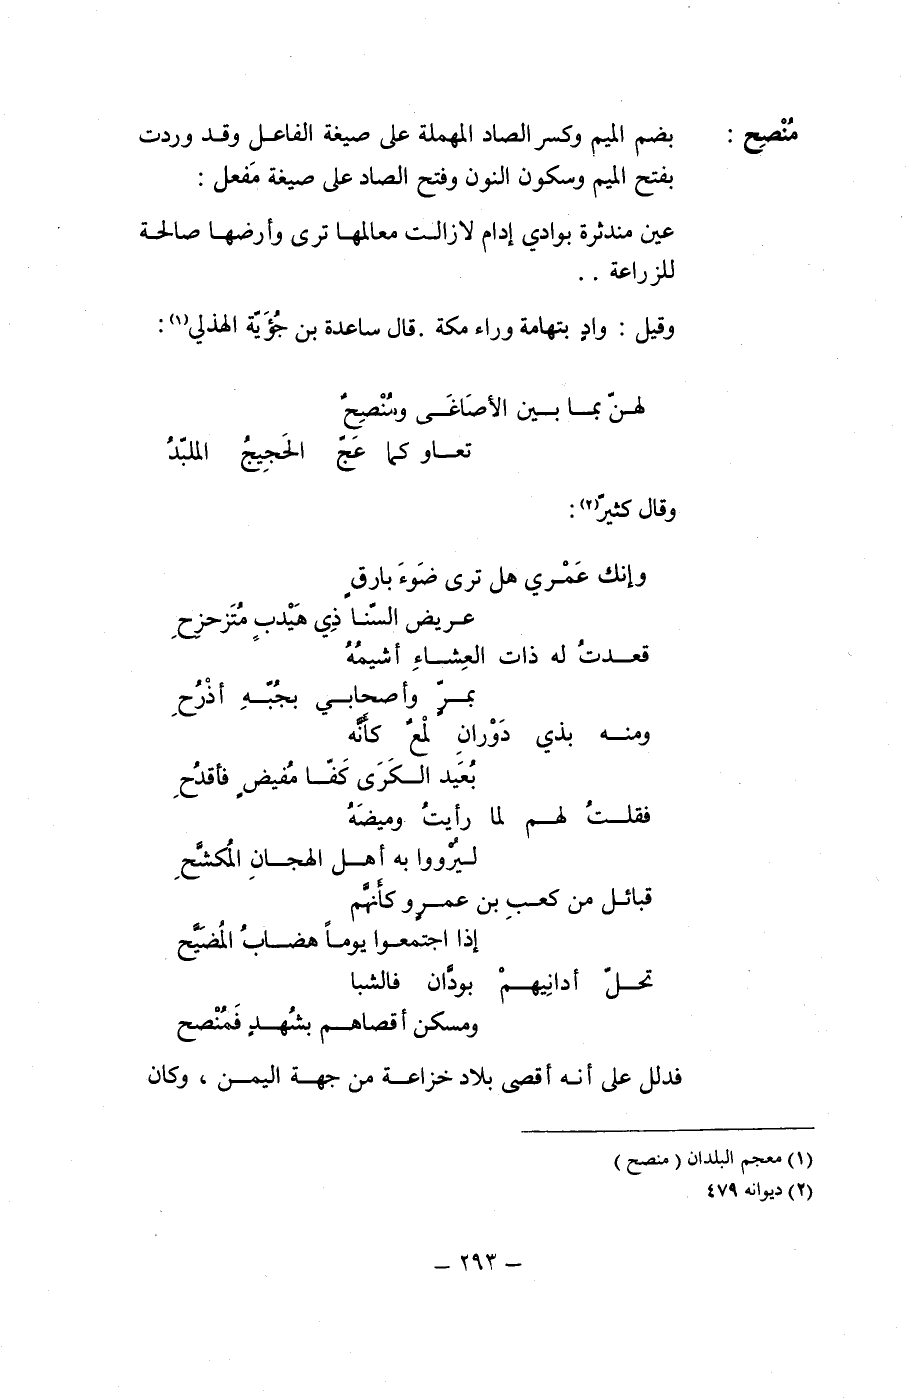 مُنْصِح : بضم الميم وكسر الصاد المهملة على صيغة الفاعل وقد وردت
بفتح الميم وسكون النون وفتح الصاد على صيغة مَفعل :
عين مندثرة بوادي إدام لازالت معالمها ترى وأرضها صالحة
للزراعة . .
وقيل : وادٍ بتهامة وراء مكة . قال ساعدة بن جُؤَيَّة الهذلي(١) :
لهنّ بما بين الأصَاغَى ومُنْصِحٌ
تعاو كما عَجَّ الحَجِيجُ الملبّدُ
وقال كثيرّ(٢) :
وإنك عَمْري هل ترى ضَوءَ بارقٍ
عريض السّنا ذِي هَيْدبٍ مُتَزحزحِ
قعدتُ له ذات العِشاءِ أشيمُهُ
بمرٍّ وأصحابي بجُبّهِ أذْرُحِ
ومنه بذي دَوْرانِ لمْعٌ كأنَّه
بُعَيد الكَرَى كَفّا مُفيضٍ فأقدُحِ
فقلتُ لهم لما رأيتُ وميضَهُ
ليُرْووا به أهل الهجانِ المُكشَّحِ
قبائل من كعبِ بن عمرٍو كأنهَّم
إذا اجتمعوا يوماً هضابُ المُضَيَّح
تحلّ أدانِيهمْ بودَّان فالشبا
ومسكن أقصاهم بشُهدٍ فَمُنْصح
فدلل على أنه أقصى بلاد خزاعة من جهة اليمن ، وكان
(١) معجم البلدان ( منصح )
(٢) ديوانه ٤٧٩
– ٢٩٣ –